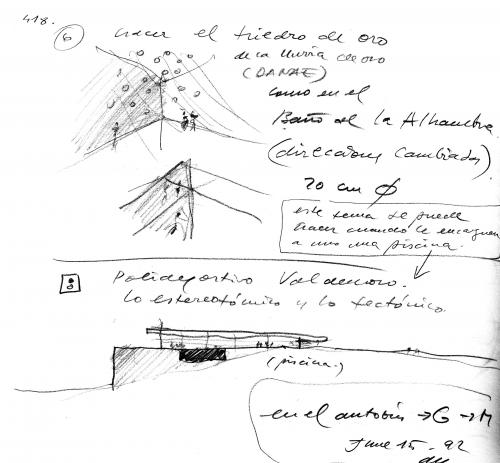 418.
6 hacer el triedro de oro
de la lluvia de oro
(DANAE)
como en el
Baño de la Alhambra
(direcciones cambiadas)
20 cm Ø
este tema se puede
hacer cuando le encarguen
a uno una piscina.
8 Polideportivo Valdemoro.
lo estereotómico y lo tectónico.
(piscina)
en el autobús → G → M
June 15 - 92